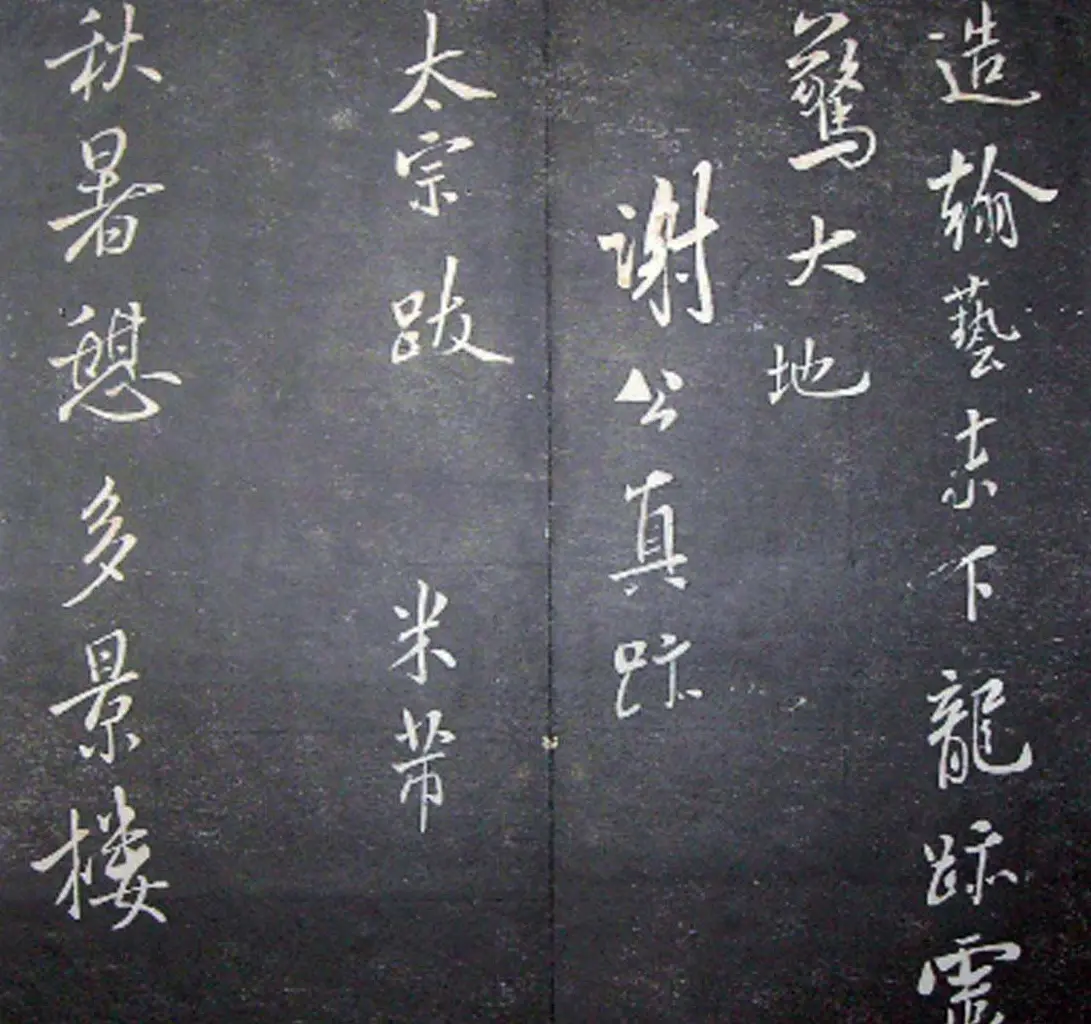 造翰藝素下龍跡震
驚大地
謝公真跡
太宗跋 米芾
秋暑憩多景樓